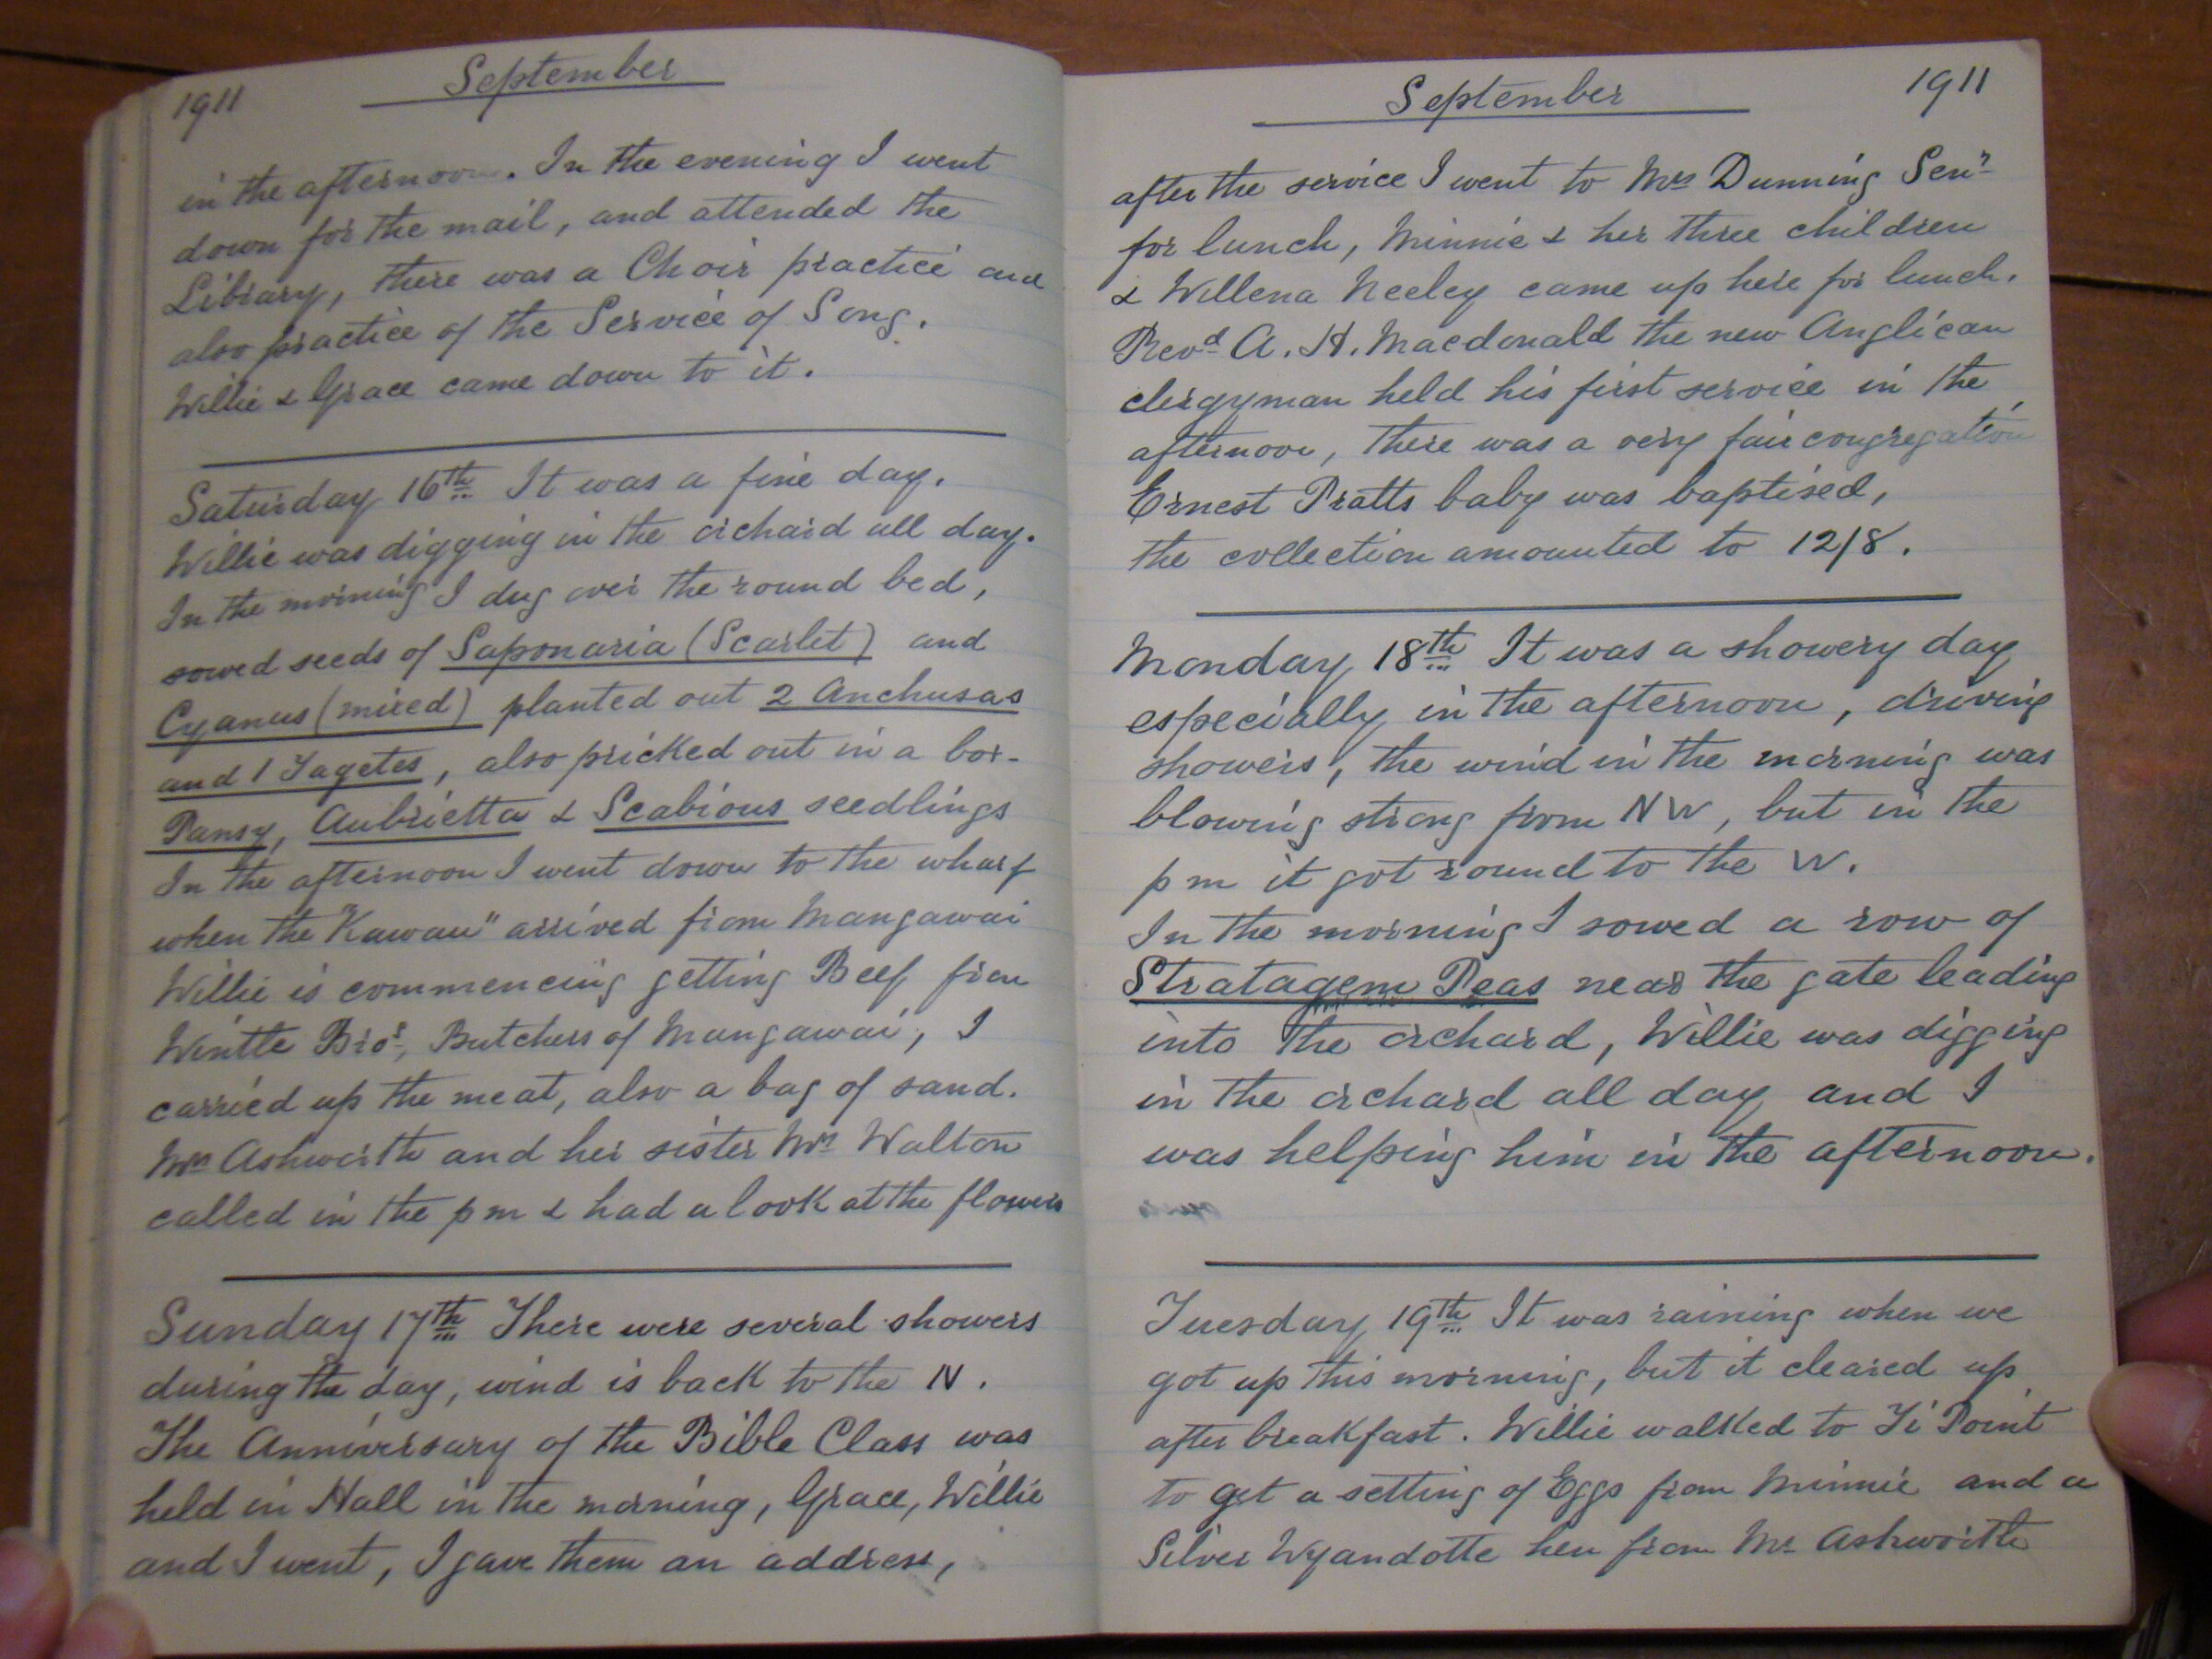 1911
September
in the afternoon. In the evening I went
down for the mail, and attended the
Library, there was a Choir practice and
also practice of the Service of Song.
Willie & Grace came down to it.
Saturday 16th It was a fine day.
Willie was digging in the orchard all day.
In the morning I dug over the round bed,
sowed seeds of Saponaria (Scarlet) and
Cyanus (mixed) planted out 2 Anchusas
and 1 Tagetes, also pricked out in a box-
Pansy, Aubrietta & Scabious seedlings
In the afternoon I went down to the wharf
when the "Kawau" arrived from Mangawai
Willie is commencing getting Beef from
Wintle Bros, Butchers of Mangawai, I
carried up the meat, also a bag of sand.
Mrs Ashworth and her sister Mrs Walton
called in the pm & had a look at the flowers
Sunday 17th There were several showers
during the day, wind is back to the N.
The Anniversary of the Bible Class was
held in Hall in the morning, Grace, Willie
and I went, I gave them an address,
September
1911
after the service I went to Mrs Dunning Senr
for lunch, Minnie & her three children
& Willena Neeley came up here for lunch.
Revd A. H. Macdonald the new Anglican
clergyman held his first service in the
afternoon, there was a very fair congregation,
Ernest Pratts baby was baptised,
the collection amounted to 12/8.
Monday 18th It was a showery day
especially in the afternoon, driving
showers, the wind in the morning was
blowing strong from NW, but in the
pm it got round to the W.
In the morning I sowed a row of
Stratagem Peas near the gate leading
into the orchard, Willie was digging
in the orchard all day and I
was helping him in the afternoon.
Tuesday 19th It was raining when we
got up this morning, but it cleared up
after breakfast. Willie walked to Ti Point
to get a setting of Eggs from Minnie and a
Silver Wyandotte hen from Mr Ashworth